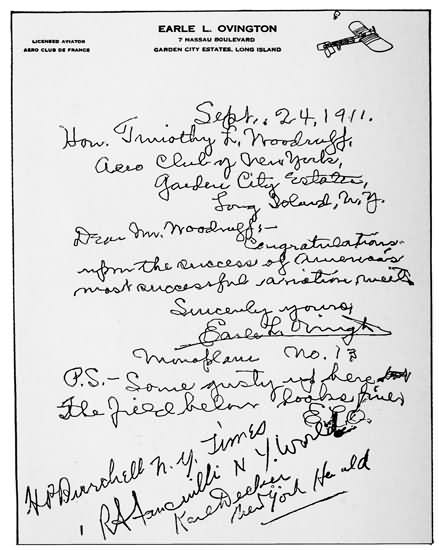 EARLE L. OVINGTON
7 NASSAU BOULEVARD
GARDEN CITY ESTATES, LONG ISLAND
LICENSED AVIATOR
AERO CLUB DE FRANCE
Sept. 24, 1911.
Hon. Timothy L. Woodruff,
Aero Club of New York,
Garden City Estates,
Long Island, N.Y.
Dear Mr. Woodruff:-
Congratulations
upon the success of America's
most successful aviation meet.
Sincerely yours,
Earle L. Ovington
Monoplane No. 13
P.S.- Some gusty up here
the field below looks fine.
E.L.O.
N.Y. Times
N Y. World
Karl Decker
New York Herald